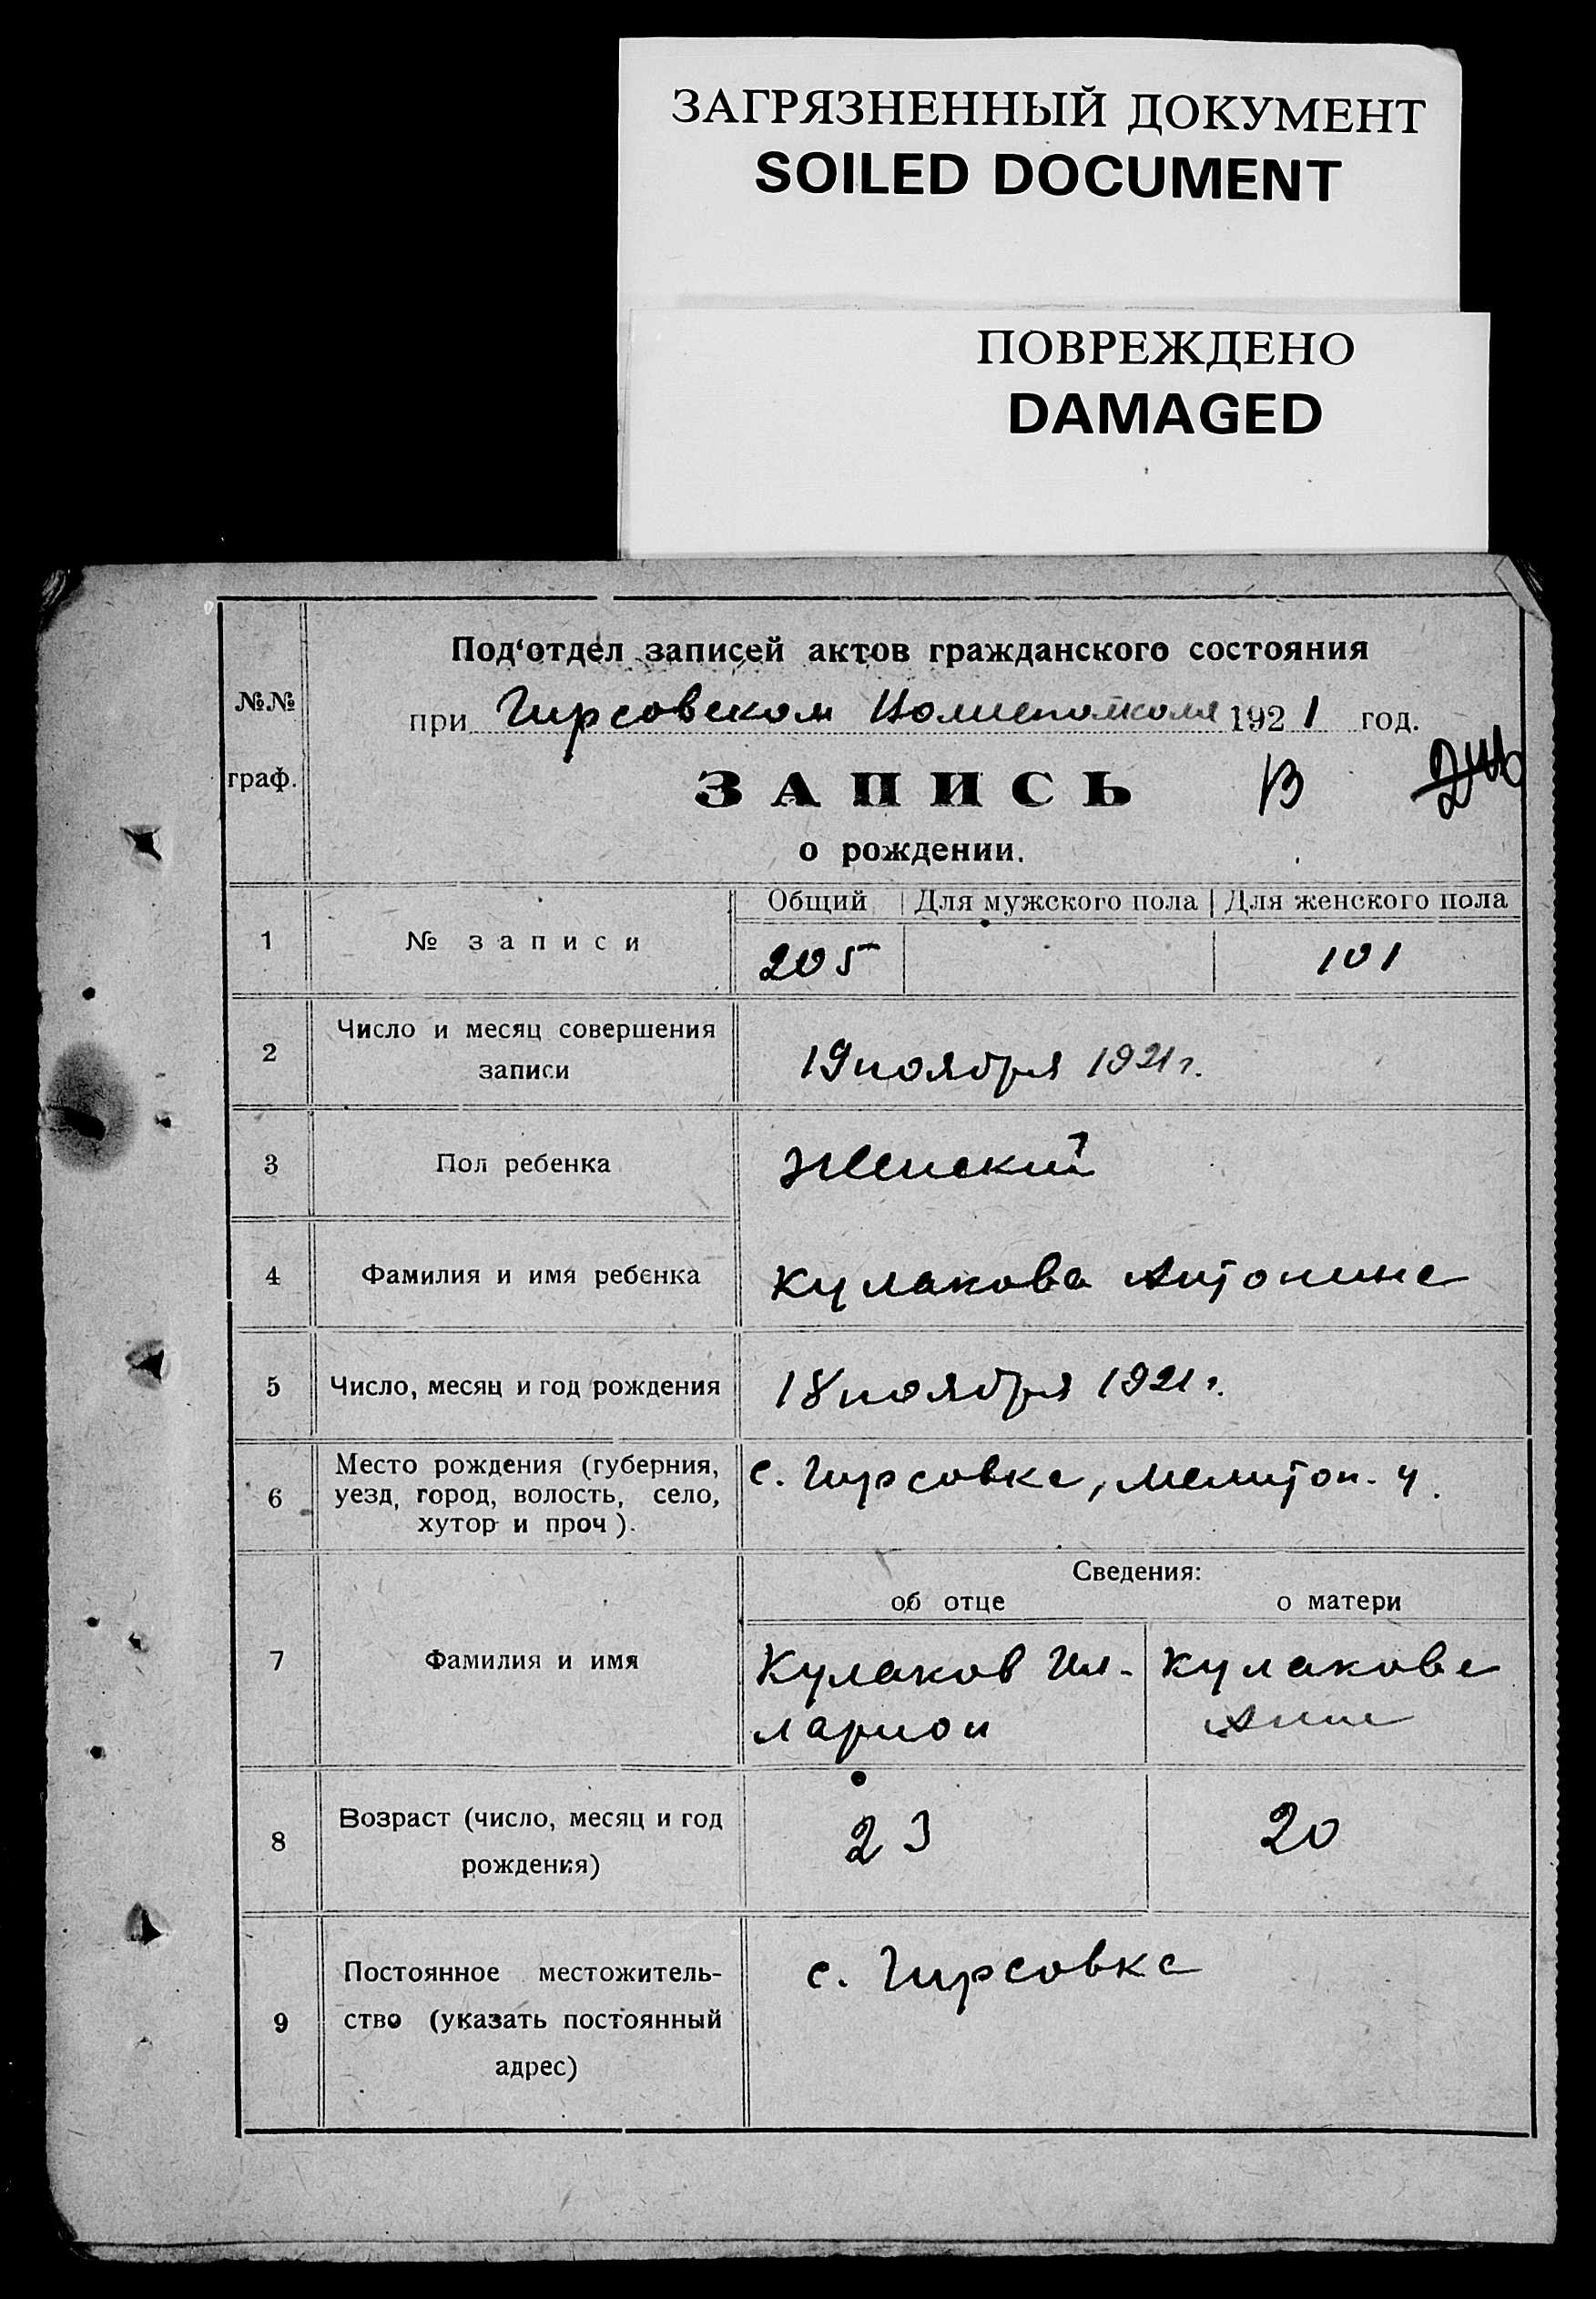 ЗАГРЯЗНЕННЫЙ ДОКУМЕНТ
SOILED DOCUMENT
ПОВРЕЖДЕНО
DAMAGED
Под‘отдел записей актов гражданского состояния
№№ граф.
при Гирсовском Волисполкоме 1921 год.
ЗАПИСЬ В
о рождении.
Общий Для мужского пола Для женского пола
1 № записи 205 101
2 Число и месяц совершения
записи
19 ноября 1921 г.
3 Пол ребенка Женский
4 Фамилия и имя ребенка Кулакова Антонина
5 Число, месяц и год рождения 18 ноября 1921 г.
6 Место рождения (губерния,
уезд, город, волость, село,
хутор и проч).
с. Гирсовка, Мелитоп. у.
Сведения:
об отце о матери
7 Фамилия и имя
Кулаков Ил-
ларион
Кулакова
Анна
8 Возраст (число, месяц и год
рождения)
23 20
9 Постоянное местожитель-
ство (указать постоянный
адрес)
с. Гирсовка